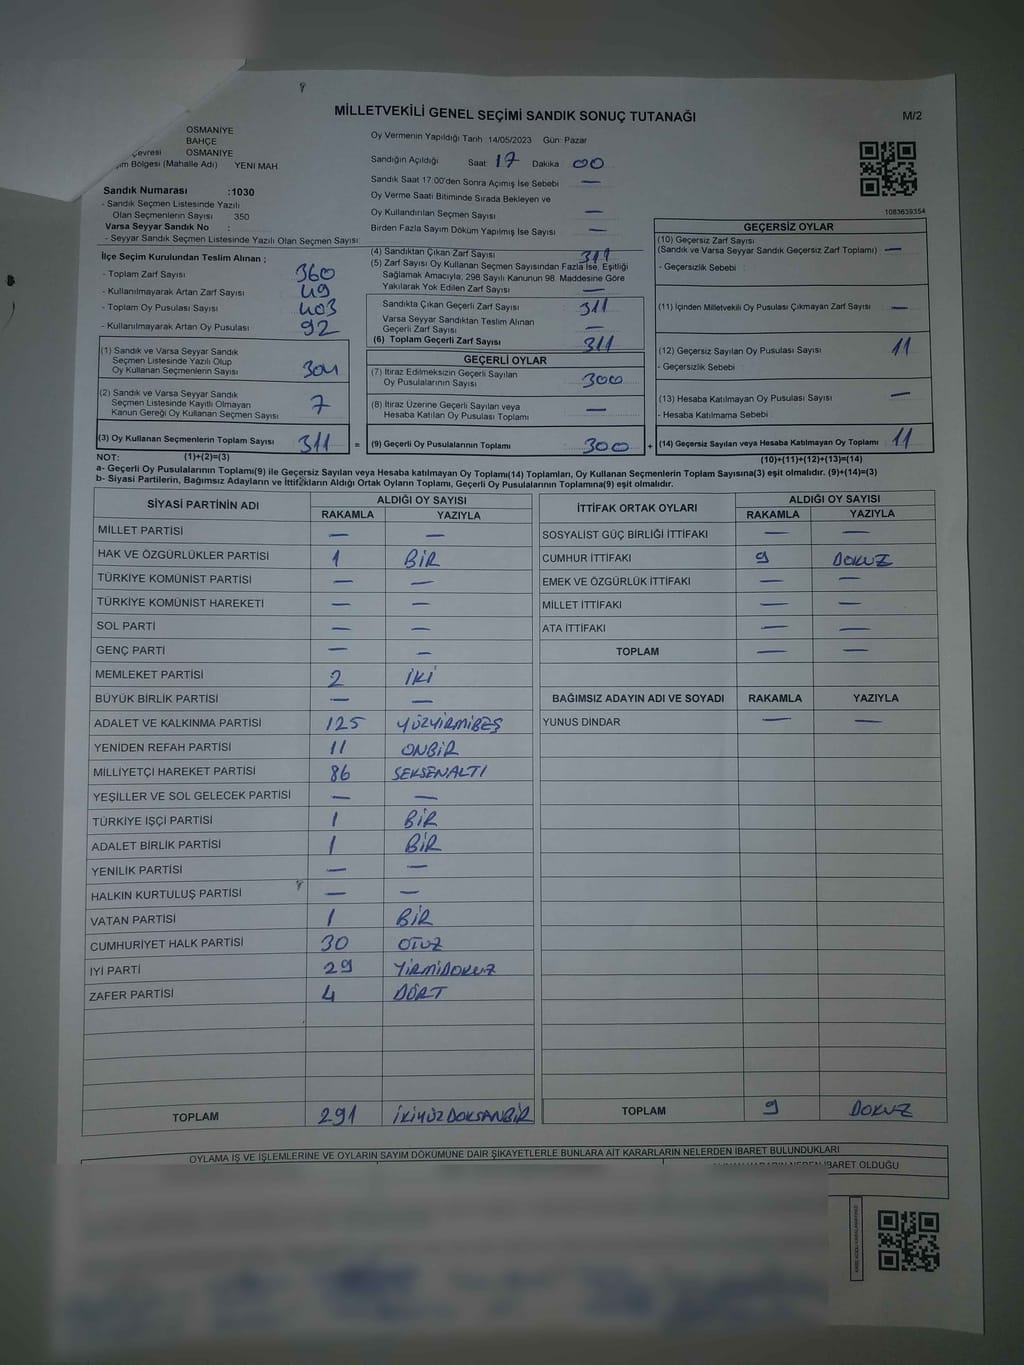 MİLLETVEKİLİ GENEL SEÇİMİ SANDIK SONUÇ TUTANAĞI
M/2
OSMANİYE
BAHÇE
Çevresi OSMANİYE
Bölgesi (Mahalle Adı) YENİ MAH
Sandık Numarası :1030
- Sandık Seçmen Listesinde Yazılı
Olan Seçmenlerin Sayısı 350
Varsa Seyyar Sandık No :
- Seyyar Sandık Seçmen Listesinde Yazılı Olan Seçmen Sayısı:
Oy Vermenin Yapıldığı Tarih 14/05/2023 Gün: Pazar
Sandığın Açıldığı Saat 17 Dakika 00
Sandık Saat 17:00'den Sonra Açımış İse Sebebi —
Oy Verme Saati Bitiminde Sırada Bekleyen ve
Oy Kullandırılan Seçmen Sayısı —
Birden Fazla Sayım Döküm Yapılmış İse Sayısı —
1083639354
İlçe Seçim Kurulundan Teslim Alınan ;
- Toplam Zarf Sayısı 360
- Kullanılmayarak Artan Zarf Sayısı 49
- Toplam Oy Pusulası Sayısı 403
- Kullanılmayarak Artan Oy Pusulası 92
(1) Sandık ve Varsa Seyyar Sandık
Seçmen Listesinde Yazılı Olup
Oy Kullanan Seçmenlerin Sayısı 304
(2) Sandık ve Varsa Seyyar Sandık
Seçmen Listesinde Kayıtlı Olmayan
Kanun Gereği Oy Kullanan Seçmen Sayısı 7
(3) Oy Kullanan Seçmenlerin Toplam Sayısı 311 =
(4) Sandıktan Çıkan Zarf Sayısı 311
(5) Zarf Sayısı Oy Kullanan Seçmen Sayısından Fazla İse, Eşitliği
Sağlamak Amacıyla, 298 Sayılı Kanunun 98. Maddesine Göre
Yakılarak Yok Edilen Zarf Sayısı —
Sandıkta Çıkan Geçerli Zarf Sayısı 311
Varsa Seyyar Sandıktan Teslim Alınan
Geçerli Zarf Sayısı —
(6) Toplam Geçerli Zarf Sayısı 311
GEÇERLİ OYLAR
(7) İtiraz Edilmeksizin Geçerli Sayılan
Oy Pusulalarının Sayısı 300
(8) İtiraz Üzerine Geçerli Sayılan veya
Hesaba Katılan Oy Pusulası Toplamı —
(9) Geçerli Oy Pusulalarının Toplamı 300 +
GEÇERSİZ OYLAR
(10) Geçersiz Zarf Sayısı
(Sandık ve Varsa Seyyar Sandık Geçersiz Zarf Toplamı) —
- Geçersizlik Sebebi :
(11) İçinden Milletvekili Oy Pusulası Çıkmayan Zarf Sayısı —
(12) Geçersiz Sayılan Oy Pusulası Sayısı 11
- Geçersizlik Sebebi
(13) Hesaba Katılmayan Oy Pusulası Sayısı —
- Hesaba Katılmama Sebebi
(14) Geçersiz Sayılan veya Hesaba Katılmayan Oy Toplamı 11
NOT: (1)+(2)=(3)
(10)+(11)+(12)+(13)=(14)
a- Geçerli Oy Pusulalarının Toplamı(9) ile Geçersiz Sayılan veya Hesaba katılmayan Oy Toplamı(14) Toplamları, Oy Kullanan Seçmenlerin Toplam Sayısına(3) eşit olmalıdır. (9)+(14)=(3)
b- Siyasi Partilerin, Bağımsız Adayların ve İttifakların Aldığı Ortak Oyların Toplamı, Geçerli Oy Pusulalarının Toplamına(9) eşit olmalıdır.
SİYASİ PARTİNİN ADI ALDIĞI OY SAYISI
RAKAMLA YAZIYLA
MİLLET PARTİSİ — —
HAK VE ÖZGÜRLÜKLER PARTİSİ 1 BİR
TÜRKİYE KOMÜNİST PARTİSİ — —
TÜRKİYE KOMÜNİST HAREKETİ — —
SOL PARTİ — —
GENÇ PARTİ — —
MEMLEKET PARTİSİ 2 İKİ
BÜYÜK BİRLİK PARTİSİ — —
ADALET VE KALKINMA PARTİSİ 125 YÜZYİRMİBEŞ
YENİDEN REFAH PARTİSİ 11 ONBİR
MİLLİYETÇİ HAREKET PARTİSİ 86 SEKSENALTI
YEŞİLLER VE SOL GELECEK PARTİSİ — —
TÜRKİYE İŞÇİ PARTİSİ 1 BİR
ADALET BİRLİK PARTİSİ 1 BİR
YENİLİK PARTİSİ — —
HALKIN KURTULUŞ PARTİSİ — —
VATAN PARTİSİ 1 BİR
CUMHURİYET HALK PARTİSİ 30 OTUZ
İYİ PARTİ 29 YİRMİDOKUZ
ZAFER PARTİSİ 4 DÖRT
TOPLAM 291 İKİYÜZDOKSANBİR
İTTİFAK ORTAK OYLARI ALDIĞI OY SAYISI
RAKAMLA YAZIYLA
SOSYALİST GÜÇ BİRLİĞİ İTTİFAKI — —
CUMHUR İTTİFAKI 9 DOKUZ
EMEK VE ÖZGÜRLÜK İTTİFAKI — —
MİLLET İTTİFAKI — —
ATA İTTİFAKI — —
TOPLAM — —
BAĞIMSIZ ADAYIN ADI VE SOYADI RAKAMLA YAZIYLA
YUNUS DİNDAR — —
TOPLAM 9 DOKUZ
OYLAMA İŞ VE İŞLEMLERİNE VE OYLARIN SAYIM DÖKÜMÜNE DAİR ŞİKAYETLERLE BUNLARA AİT KARARLARIN NELERDEN İBARET BULUNDUKLARI
İBARET OLDUĞU